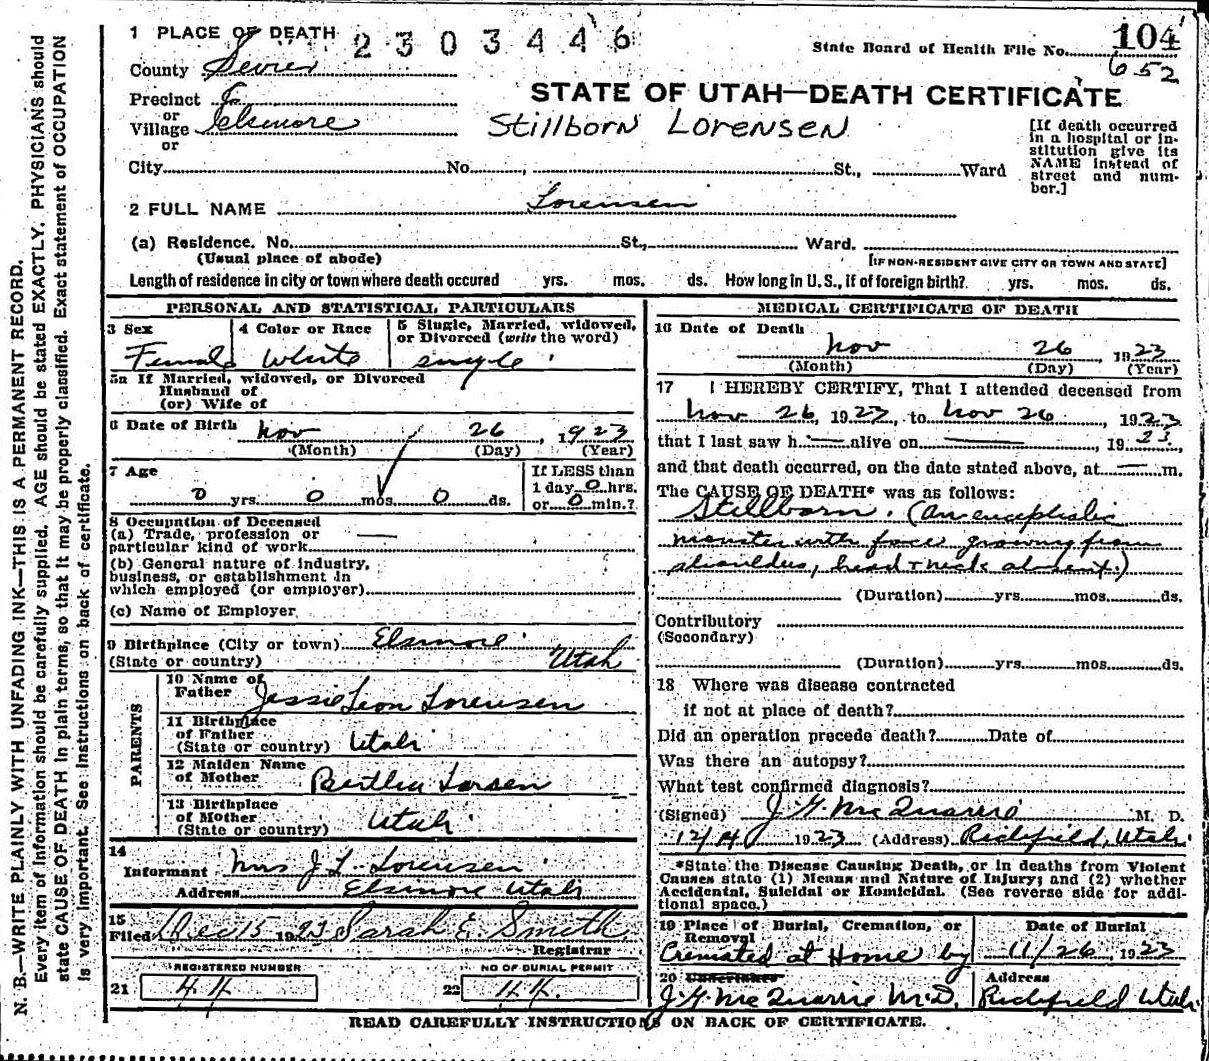 N. B.—WRITE PLAINLY WITH UNFADING INK—THIS IS A PERMANENT RECORD.
Every item of Information should be carefully supplied. AGE should be stated EXACTLY. PHYSICIANS should
state CAUSE OF DEATH in plain terms, so that it may be properly classified. Exact statement of OCCUPATION
is very important. See Instructions on back of certificate.
1 PLACE OF DEATH 2303446
State Board of Health File No. 104
652
County Sevier
Precinct
or
Village Elsmore
or
STATE OF UTAH—DEATH CERTIFICATE
Stillborn Lorensen
[If death occurred
in a hospital or in-
stitution give its
NAME instead of
street and num-
ber.]
City No. , St., Ward
2 FULL NAME Lorensen
(a) Residence. No. St., Ward.
(Usual place of abode) [IF NON-RESIDENT GIVE CITY OR TOWN AND STATE]
Length of residence in city or town where death occured yrs. mos. ds. How long in U. S., if of foreign birth? yrs. mos. ds.
PERSONAL AND STATISTICAL PARTICULARS
3 Sex 4 Color or Race 5 Single, Married, widowed,
or Divorced (write the word)
Female White single
5a If Married, widowed, or Divorced
Husband of
(or) Wife of
6 Date of Birth Nov 26, 1923
(Month) (Day) (Year)
7 Age
0 yrs. 0 mos. 0 ds.
If LESS than
1 day 0 hrs.
or 0 min.?
8 Occupation of Deceased
(a) Trade, profession or
particular kind of work —
(b) General nature of industry,
business, or establishment in
which employed (or employer)
(c) Name of Employer
9 Birthplace (City or town) Elsmore
(State or country) Utah
PARENTS
10 Name of
Father Jessie Leon Lorensen
11 Birthplace
of Father
(State or country) Utah
12 Maiden Name
of Mother Bertha Larsen
13 Birthplace
of Mother
(State or country) Utah
14
Informant Mrs J. L. Lorensen
Address Elsmore Utah
15
Filed Dec 15 1923 Sarah E. Smith
Registrar
REGISTERED NUMBER NO OF BURIAL PERMIT
21 44 22 44
MEDICAL CERTIFICATE OF DEATH
16 Date of Death
Nov 26 1923
(Month) (Day) (Year)
17 I HEREBY CERTIFY, That I attended deceased from
Nov 26, 1923, to Nov 26, 1923
that I last saw h — alive on —, 1923,
and that death occurred, on the date stated above, at — m.
The CAUSE OF DEATH* was as follows:
Stillborn. (Anencephalic
monster with face growing from
shoulders, head + neck absent.)
(Duration) yrs. mos. ds.
Contributory
(Secondary)
(Duration) yrs. mos. ds.
18 Where was disease contracted
if not at place of death?
Did an operation precede death? Date of
Was there an autopsy?
What test confirmed diagnosis?
(Signed) J. G. McQuarrie M. D.
12/14 1923 (Address) Richfield, Utah
*State the Disease Causing Death, or in deaths from Violent
Causes state (1) Means and Nature of Injury; and (2) whether
Accidental, Suicidal or Homicidal. (See reverse side for addi-
tional space.)
19 Place of Burial, Cremation, or
Removal
Date of Burial
Cremated at Home by 11/26, 1923
20 Undertaker Address
J. G. McQuarrie M.D. Richfield Utah
READ CAREFULLY INSTRUCTIONS ON BACK OF CERTIFICATE.